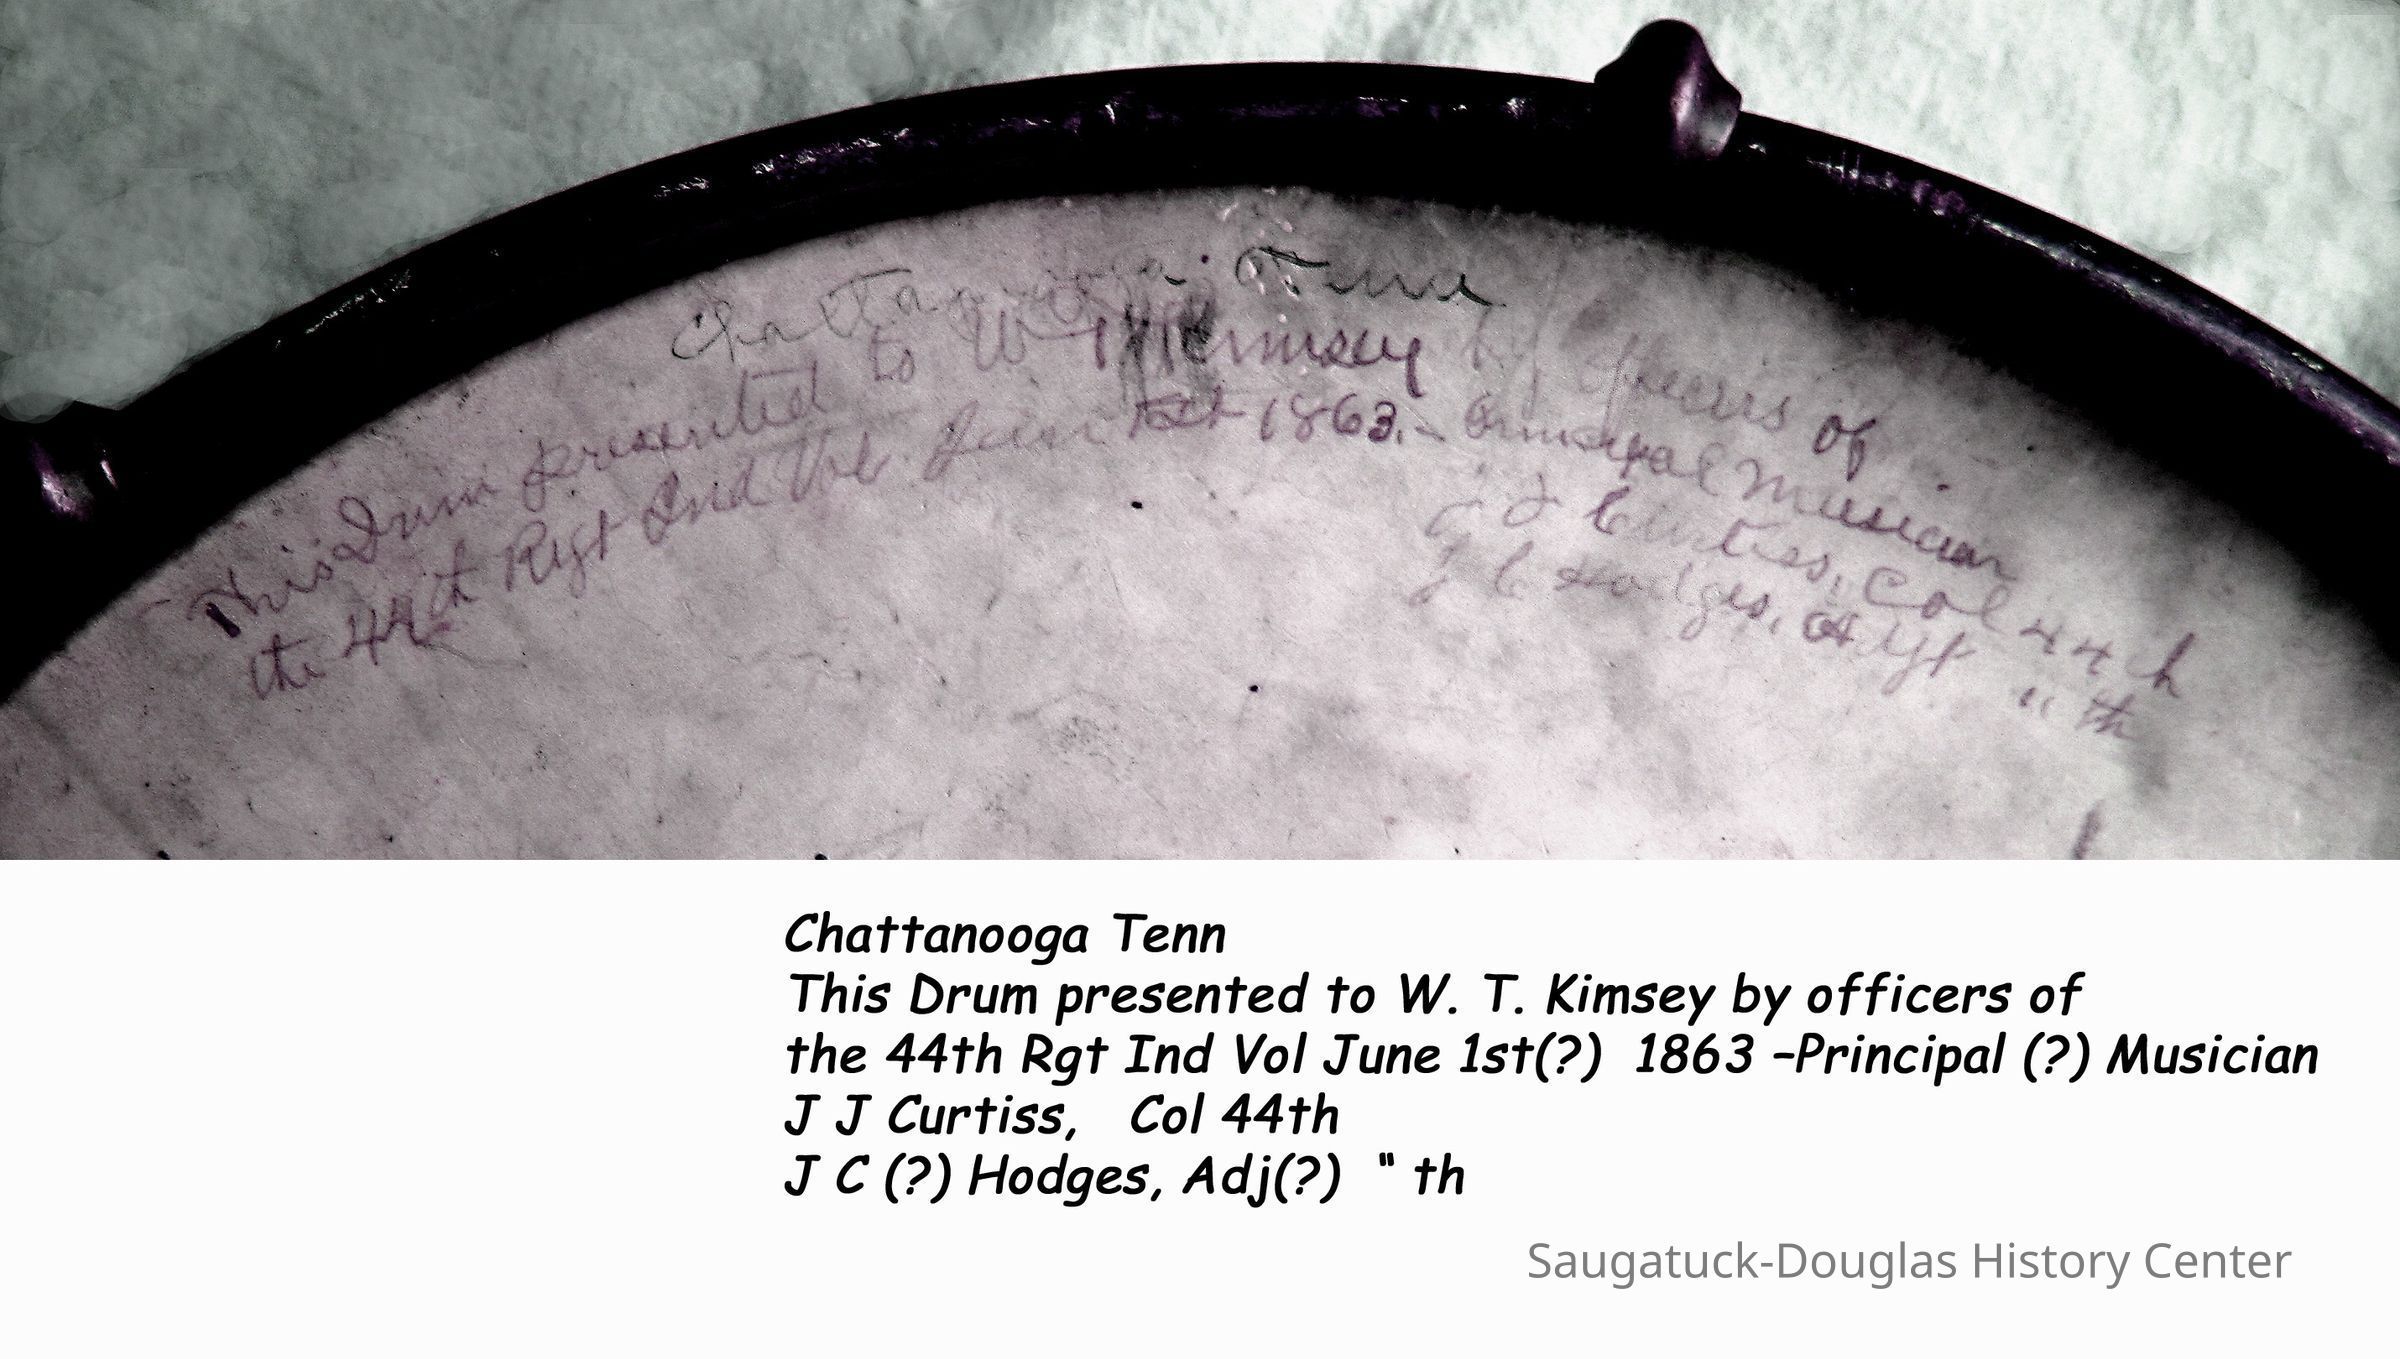 Chattanooga Tenn
This Drum presented to W T Kimsey by officers of
the 44th Rgt Ind Vol June 1863. - Principal Musician
J J Curtiss, Col 44th
J C Hodges, Adjt " th
Chattanooga Tenn
This Drum presented to W. T. Kimsey by officers of
the 44th Rgt Ind Vol June 1st(?) 1863 –Principal (?) Musician
J J Curtiss, Col 44th
J C (?) Hodges, Adj(?) " th
Saugatuck-Douglas History Center